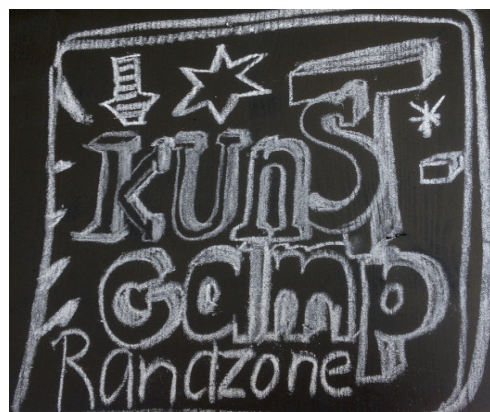 KUnST
Camp
Randzone